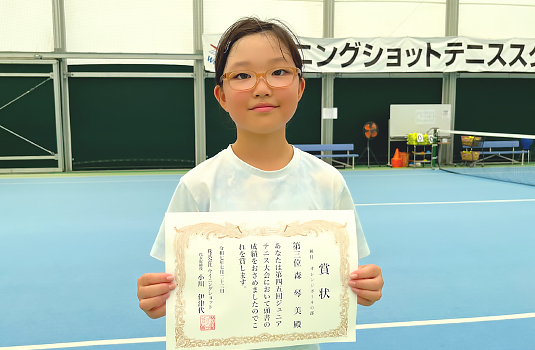 ニングショットテニススク
賞状
種目 オレンジボールの部
第三位 森 琴美 殿
あなたは第四五回ジュニア
テニス大会において頭書の
成績をおさめましたのでこ
れを賞します。
株式会社ウイニングショット
小川 伊津代